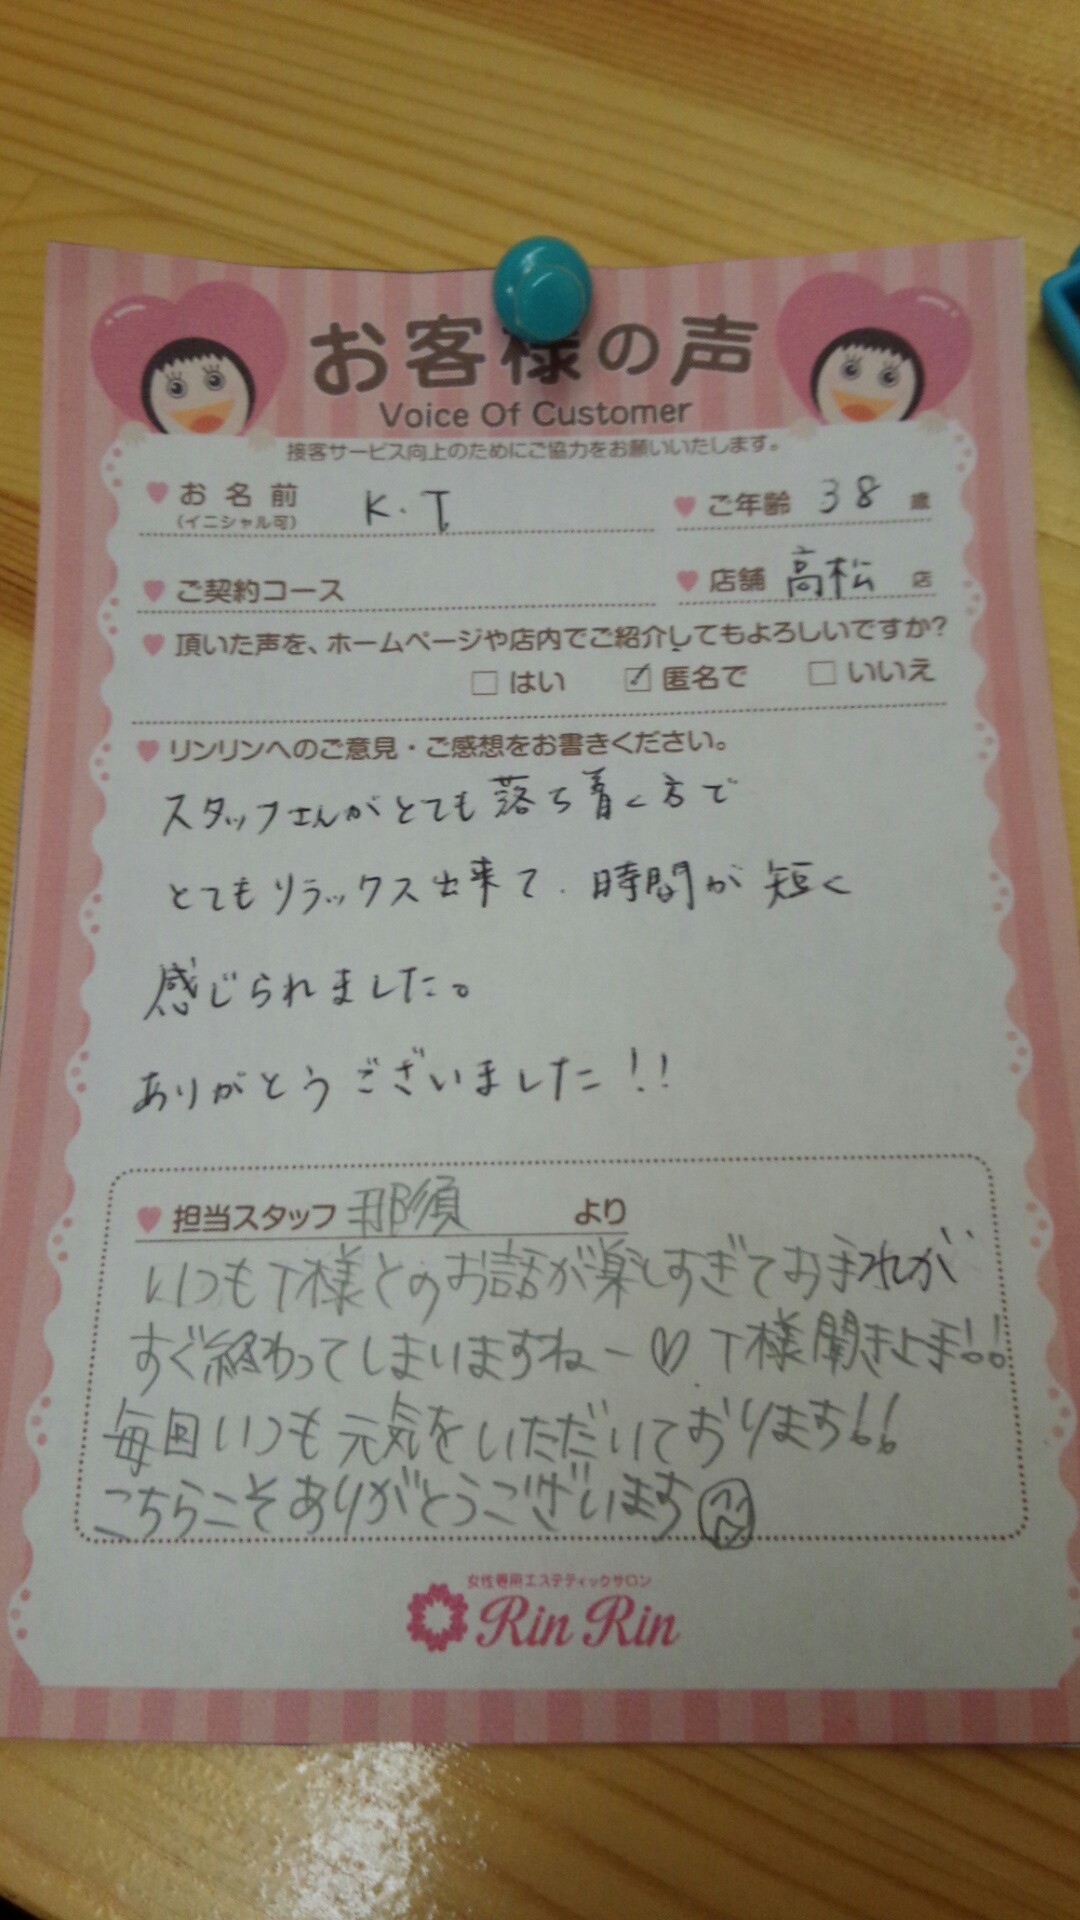 お客様の声
Voice Of Customer
接客サービス向上のためにご協力をお願いいたします。
お名前 K.T ご年齢 38 歳
(イニシャル可)
ご契約コース 店舗 高松 店
頂いた声を、ホームページや店内でご紹介してもよろしいですか?
はい 匿名で いいえ
リンリンへのご意見・ご感想をお書きください。
スタッフさんがとても落ち着く方で
とてもリラックス出来て、時間が短く
感じられました。
ありがとうございました!!
担当スタッフ 那須 より
いつもT様とのお話が楽しすぎてお手れが
すぐ終わってしまいますねー♡ T様聞き上手!!
毎回いつも元気をいただいております!!
こちらこそありがとうございます
女性専用エステティックサロン
Rin Rin